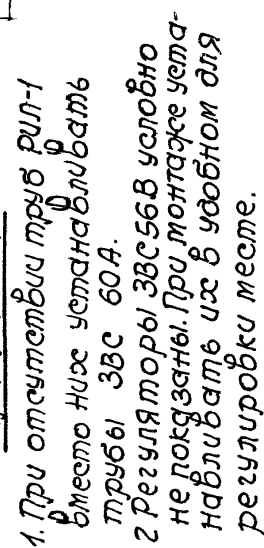 1. При отсутствии труб РИЛ-1
вместо них устанавливать
трубы ЗВС 60А.
2 Регуляторы ЗВС56В условно
не показаны. При монтаже уста-
навливать их в удобном для
регулировки месте.